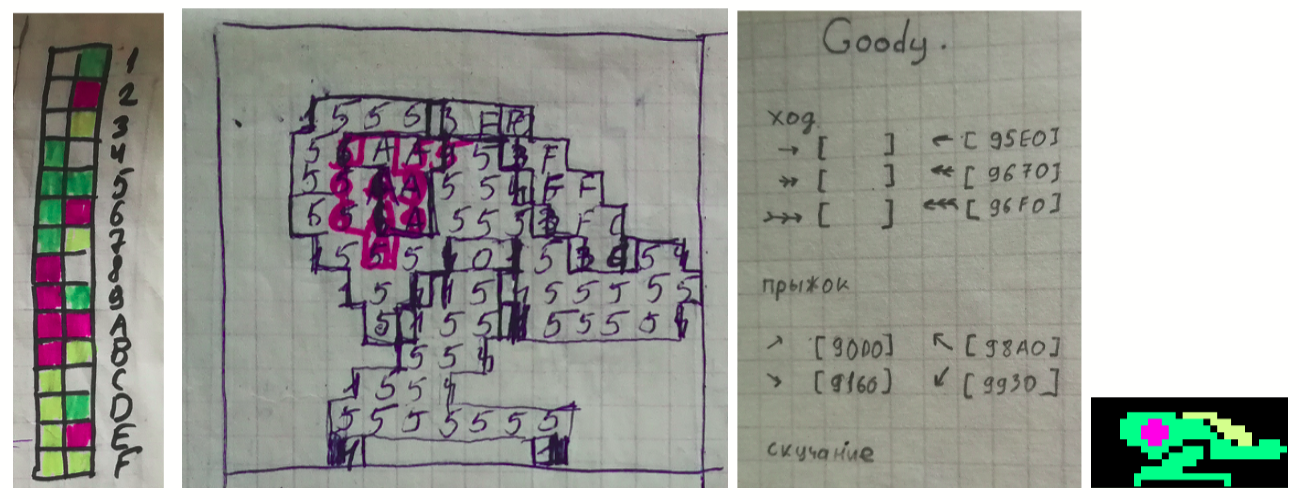 1
2
3
4
5
6
7
8
9
A
B
C
D
E
F
1 5 5 5 3 F F
5 5 A A 5 5 3 F
5 5 5 4 5 F
5 5 5 3 F C
1 5 5 5 1 0 1 5 3 C 5 4
1 5 4 1 5 5 5 5 5 5
5 1 5 5 5 5 5 5 4
5 5 4
1 5 5 4
5 5 5 5 5 5 5
1 1
Goody.
ход
→ [ ] ← [95E0]
[ ] [9670]
[ ] [96F0]
прыжок
↗ [90D0] ↖ [98A0]
↘ [9160] ↙ [9930]
скучание